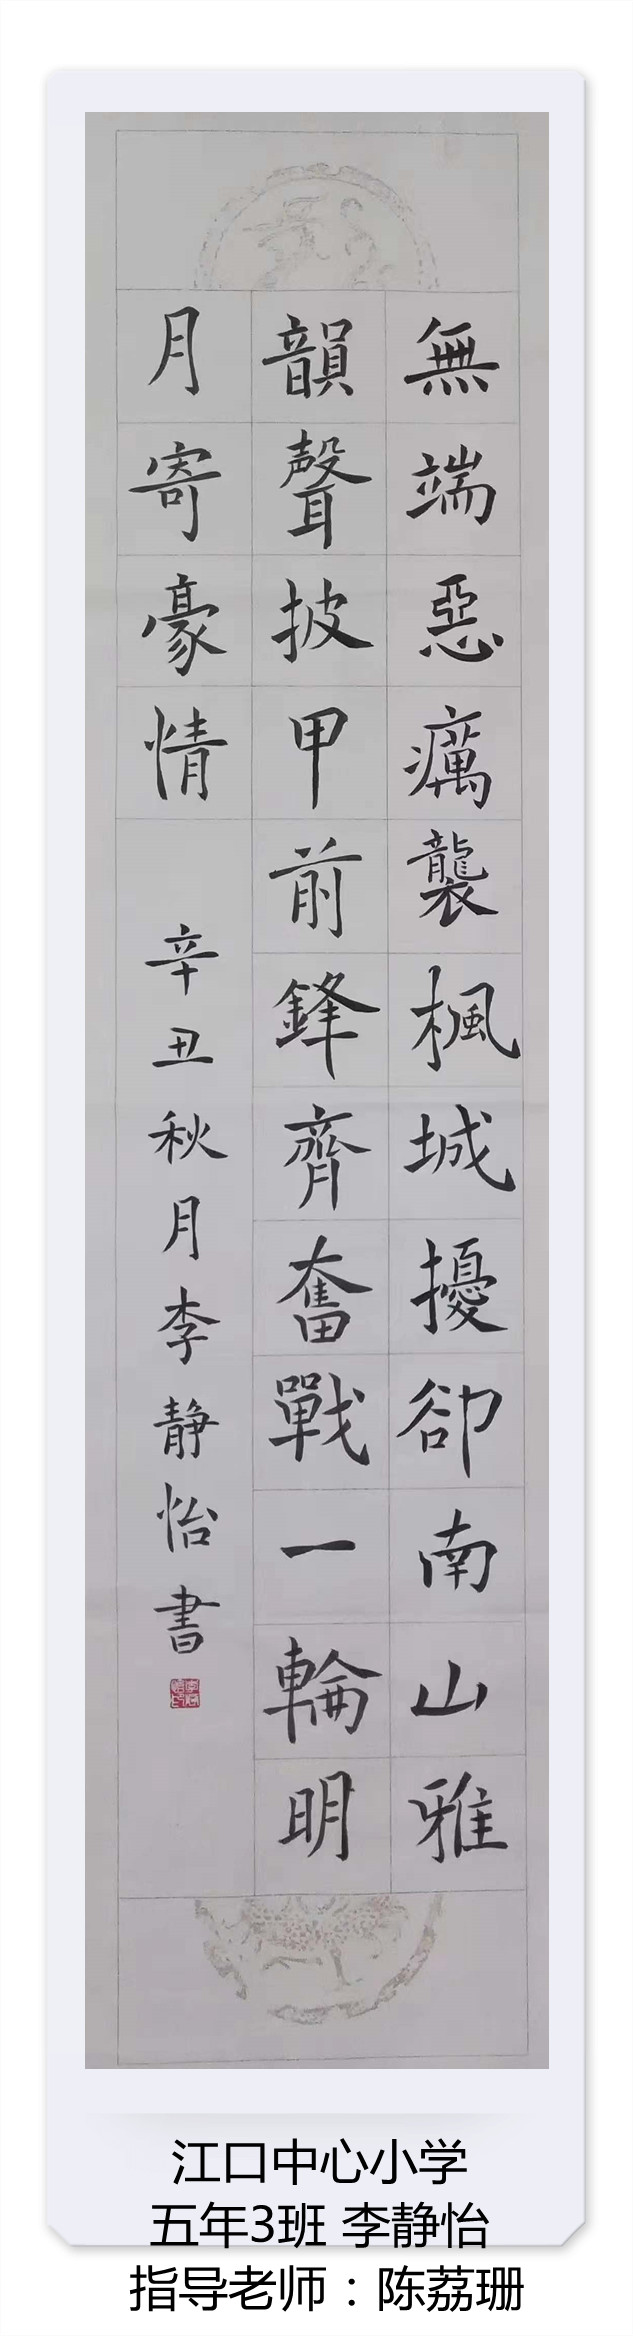 無端惡癘襲楓城擾卻南山雅
韻聲披甲前鋒齊奮戰一輪明
月寄豪情
辛丑秋月李静怡書
江口中心小学
五年3班 李静怡
指导老师：陈荔珊